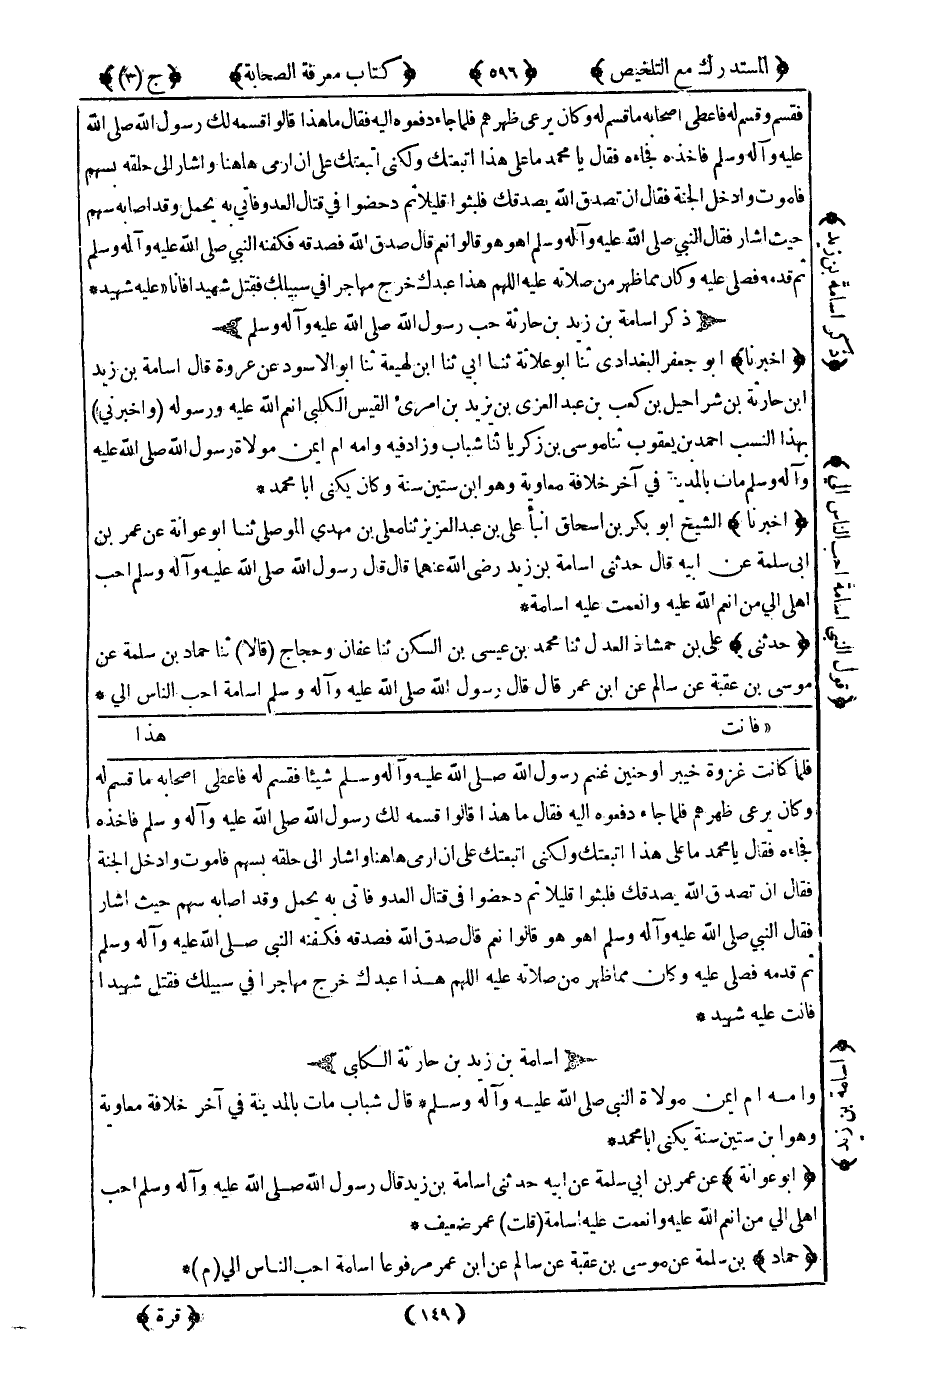 ﴿ المستدرك مع التلخيص ﴾ ﴿ ٥٩٦ ﴾ ﴿ كتاب معرفة الصحابة ﴾ ﴿ ج (٣) ﴾
فقسم وقسم له فاعطى اصحابه ما قسم له وكان يرعى ظهرهم فلما جاء دفعوه اليه فقال ما هذا قالوا قسمه لك رسول الله صلى الله
عليه وآله وسلم فاخذه فجاءه فقال يا محمد ما على هذا اتبعتك ولكنى اتبعتك على ان ارمى هاهنا واشار الى حلقه بسهم
فاموت وادخل الجنة فقال ان تصدق الله يصدقك فلبثوا قليلا ثم دحضوا فى قتال العدو فاتي به يحمل وقد اصابه سهم
حيث اشار فقال النبي صلى الله عليه وآله وسلم اهو هو قالوا نعم قال صدق الله فصدقه فكفنه النبي صلى الله عليه وآله وسلم
ثم قدمه فصلى عليه وكان مما ظهر من صلاته عليه اللهم هذا عبدك خرج مهاجرا في سبيلك فقتل شهيدا فانا« عليه شهيد *
ذكر اسامة بن زيد بن حارثة حب رسول الله صلى الله عليه وآله وسلم
﴿ اخبرنا ﴾ ابو جعفر البغدادى ثنا ابو علاثة ثنا ابي ثنا ابن لهيعة ثنا ابو الاسود عن عروة قال اسامة بن زيد
ابن حارثة بن شراحيل بن كعب بن عبد العزى بن يزيد بن امرئ القيس الكلبى انعم الله عليه ورسوله (واخبرني)
بهذا النسب احمد بن يعقوب ثنا موسى بن زكريا ثنا شباب وزاد فيه وامه ام ايمن مولاة رسول الله صلى الله عليه
وآله وسلم مات بالمدينة في آخر خلافة معاوية وهو ابن ستين سنة وكان يكنى ابا محمد *
﴿ اخبرنا ﴾ الشيخ ابو بكر بن اسحاق انبأ على بن عبد العزيز ثنا معلى بن مهدي الموصلى ثنا ابو عوانة عن عمر بن
ابى سلمة عن ابيه قال حدثنى اسامة بن زيد رضى الله عنهما قال قال رسول الله صلى الله عليه وآله وسلم احب
اهلى الي من انعم الله عليه وانعمت عليه اسامة *
﴿ حدثنى ﴾ على بن حمشاذ العدل ثنا محمد بن عيسى بن السكن ثنا عفان وحجاج (قالا) ثنا حماد بن سلمة عن
موسى بن عقبة عن سالم عن ابن عمر قال قال رسول الله صلى الله عليه وآله وسلم اسامة احب الناس الي *
« فانت هذا
فلما كانت غزوة خيبر او حنين غنم رسول الله صلى الله عليه وآله وسلم شيئا فقسم له فاعطى اصحابه ما قسم له
وكان يرعى ظهرهم فلما جاء دفعوه اليه فقال ما هذا قالوا قسمه لك رسول الله صلى الله عليه وآله وسلم فاخذه
فجاءه فقال يا محمد ما على هذا اتبعتك ولكنى اتبعتك على ان ارمى هاهنا واشار الى حلقه بسهم فاموت وادخل الجنة
فقال ان تصدق الله يصدقك فلبثوا قليلا ثم دحضوا فى قتال العدو فاتى به يحمل وقد اصابه سهم حيث اشار
فقال النبي صلى الله عليه وآله وسلم اهو هو قالوا نعم قال صدق الله فصدقه فكفنه النبى صلى الله عليه وآله وسلم
ثم قدمه فصلى عليه وكان مما ظهر من صلاته عليه اللهم هذا عبدك خرج مهاجرا في سبيلك فقتل شهيدا
فانت عليه شهيد *
اسامة بن زيد بن حارثة الكلبى
وامه ام ايمن مولاة النبي صلى الله عليه وآله وسلم * قال شباب مات بالمدينة في آخر خلافة معاوية
وهو ابن ستين سنة يكنى ابا محمد *
﴿ ابو عوانة ﴾ عن عمر بن ابي سلمة عن ابيه حدثنى اسامة بن زيد قال رسول الله صلى الله عليه وآله وسلم احب
اهلى الي من انعم الله عليه وانعمت عليه اسامة (قلت) عمر ضعيف *
﴿ حماد ﴾ بن سلمة عن موسى بن عقبة عن سالم عن ابن عمر مرفوعا اسامة احب الناس الي (م) *
(١٤٩) ﴿ قرة ﴾
﴿ ذكر اسامة بن زيد ﴾
﴿ قول النبي اسامة احب الناس الي ﴾
﴿ اسامة بن زيد ﴾